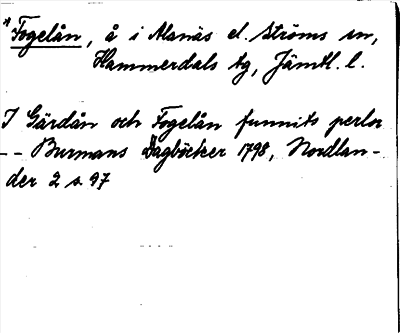 *Fogelån, å i Alanäs el. Ströms sn,
Hammerdals tg, Jämtl. l.
I Gärdån och Fogelån funnits perlor
-- Burmans Dagböcker 1798, Nordlan-
der 2 s. 97